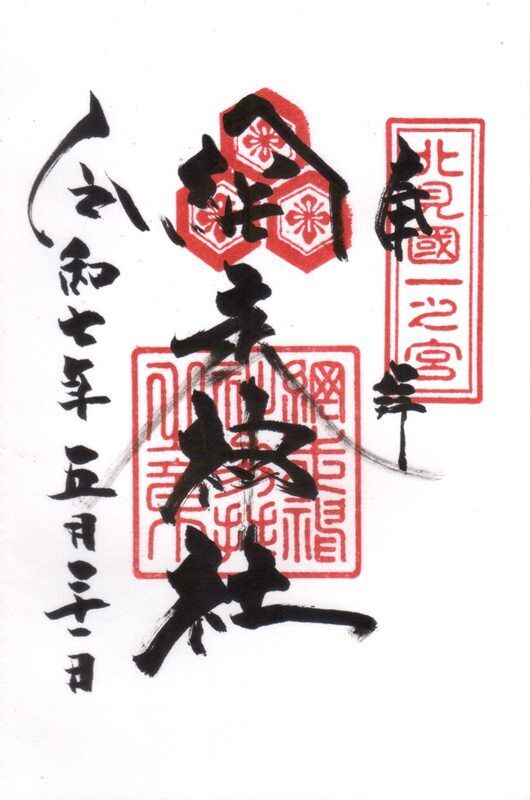 北見國一之宮
奉拝
網走神社
網走神
之章
令和七年五月三十一日